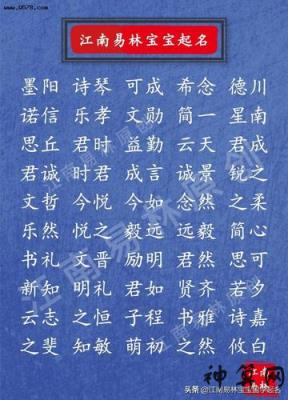 江南易林宝宝起名
墨阳 诗琴 可成 希念 德川
诺信 乐孝 文勋 简一 星南
思丘 君时 益勤 云天 君成
君诚 时君 成言 诚景 锐之
文哲 今悦 今如 念然 之柔
乐然 悦之 毅远 远毅 简心
书礼 文晋 励明 君然 思可
新知 明礼 君如 贤齐 若夕
云志 之恒 子程 书雅 诗嘉
之斐 知敏 萌初 之然 攸白
江南易林原创
江南
神算网
头条 @江南易林宝宝国学起名